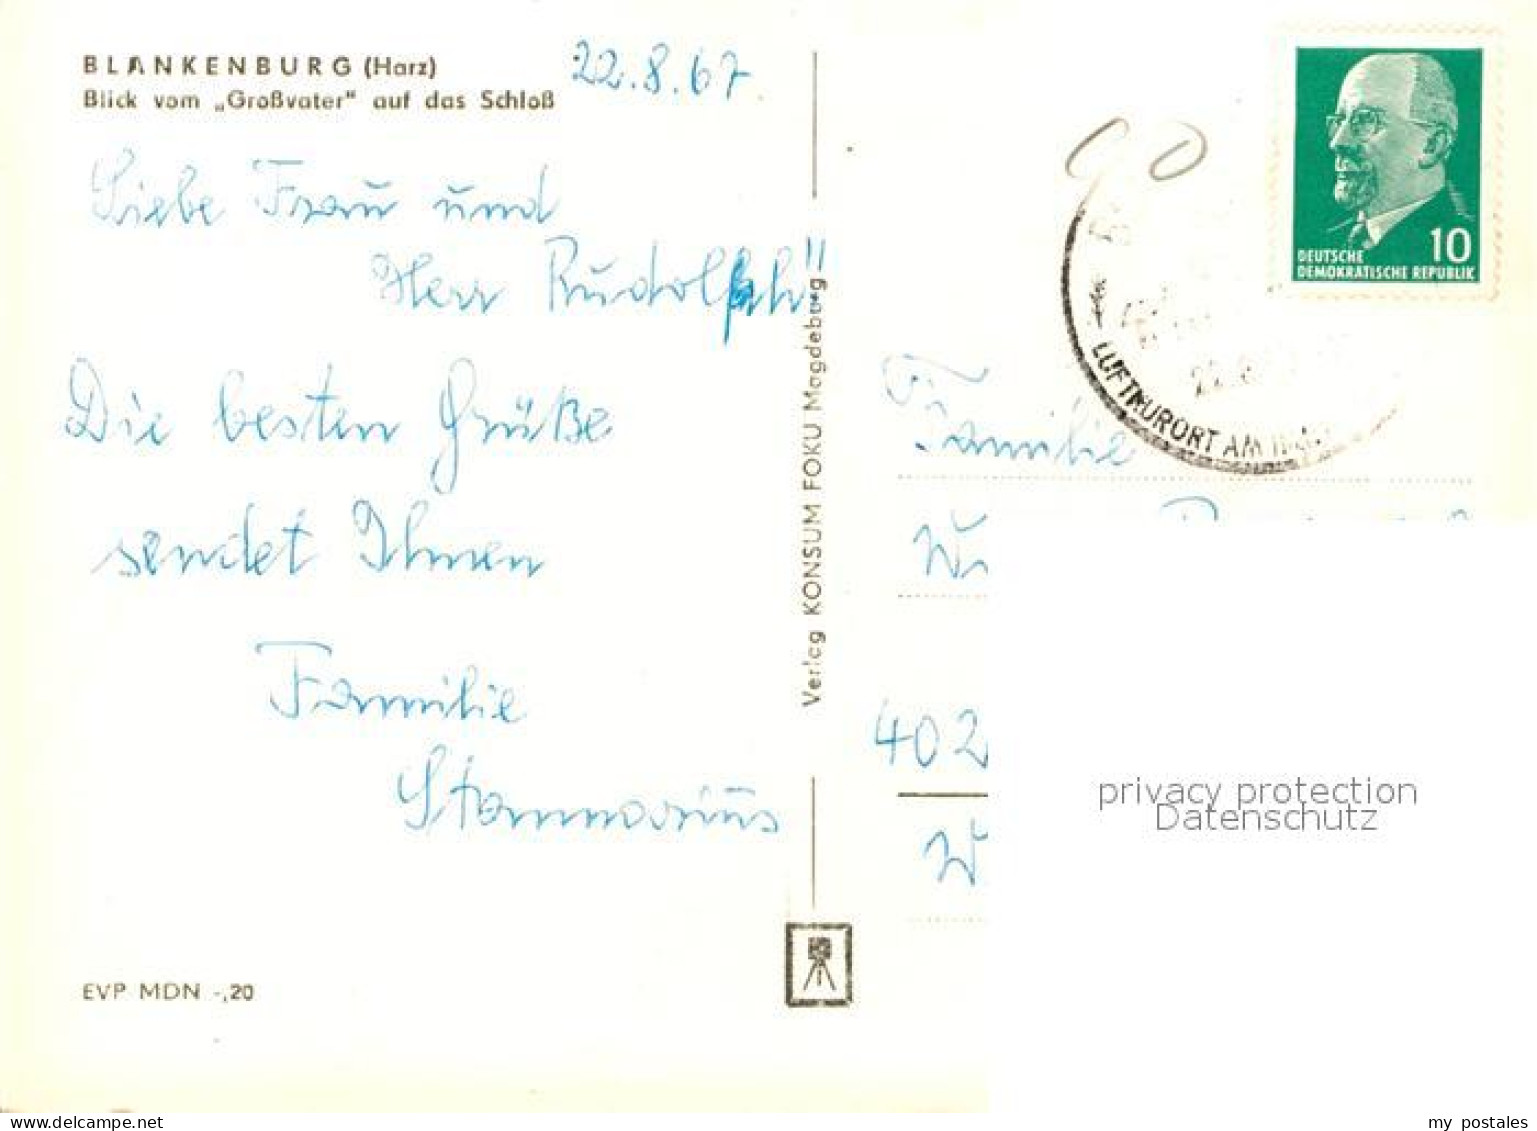 BLANKENBURG (Harz)
Blick vom „Großvater“ auf das Schloß
22.8.67
Liebe Frau und
Herr Rudolph!!
Die besten Grüße
sendet Ihnen
Familie
Stammarius
EVP MDN -,20
Verlag KONSUM FOKU Magdeburg
10
DEUTSCHE
DEMOKRATISCHE REPUBLIK
LUFTKURORT AM
Familie
402
privacy protection
Datenschutz
my postales